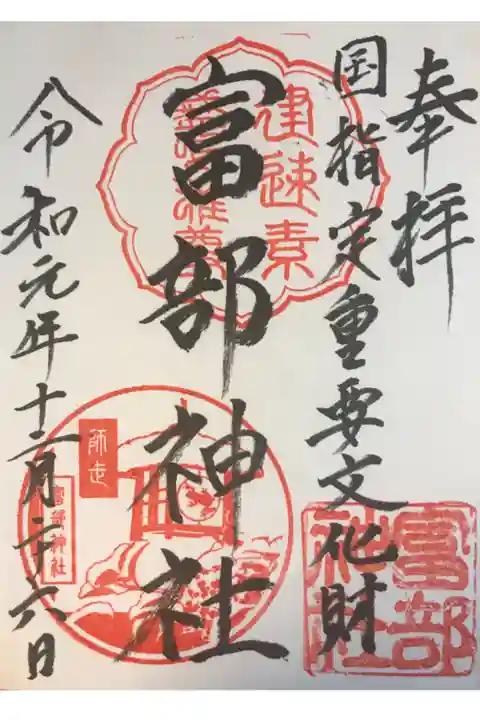 奉拝
国指定重要文化財
富部神社
令和元年十二月二十六日
建速素
盞嗚尊
師走
富部神社
富部
神社